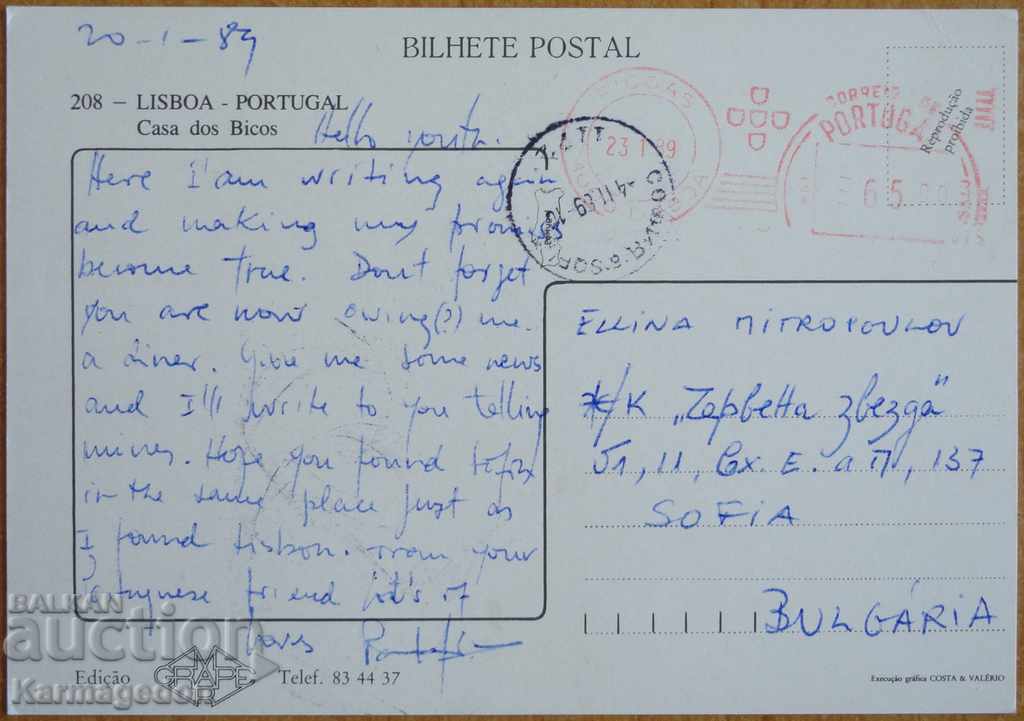 20-1-89
BILHETE POSTAL
208 – LISBOA - PORTUGAL
Casa dos Bicos
Hello
Here I'am writing again
and making my promises
become true. Dont forget
you are now owing(?) me
a diner. Give me some news
and I'll write to you telling
mines. Hope you found Sofia
in the same place just as
I found Lisbon. From your
Portuguese friend
loves
Edição
GRAPE
MOR
Telef. 83 44 37
23 1 89
CORREIO DE
PORTUGAL
65
Reprodução
proibida
-4 II.89-
ELLINA MITROPOULOU
ж/к „Zapвetta zвezga"
51, 11, Вx. E. aп, 137
SOFIA
BULGÁRIA
Execução gráfica COSTA & VALÉRIO
BALKAN
auction
Karmagedon